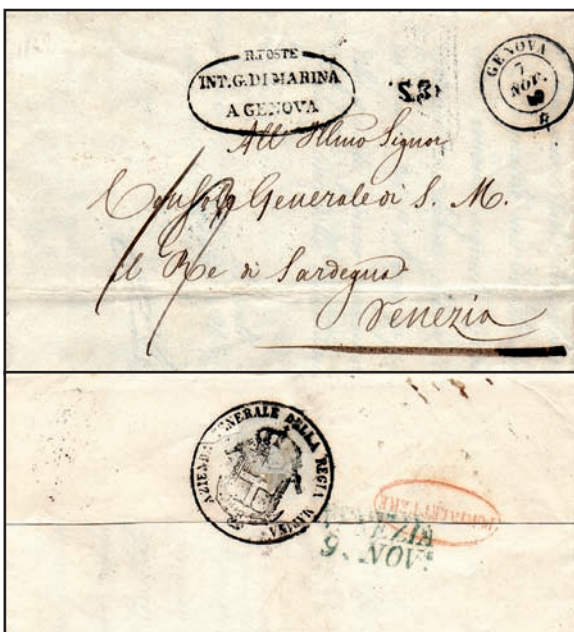 R. POSTE
INT. G. DI MARINA
A GENOVA
GENOVA
7
NOV.
B
All' Illmo Signor
Console Generale di S. M.
il Re di Sardegna
Venezia
AZIENDA GENERALE DELLA REGIA MARINA
VENEZIA
9. NOV.
PORTALETTERE